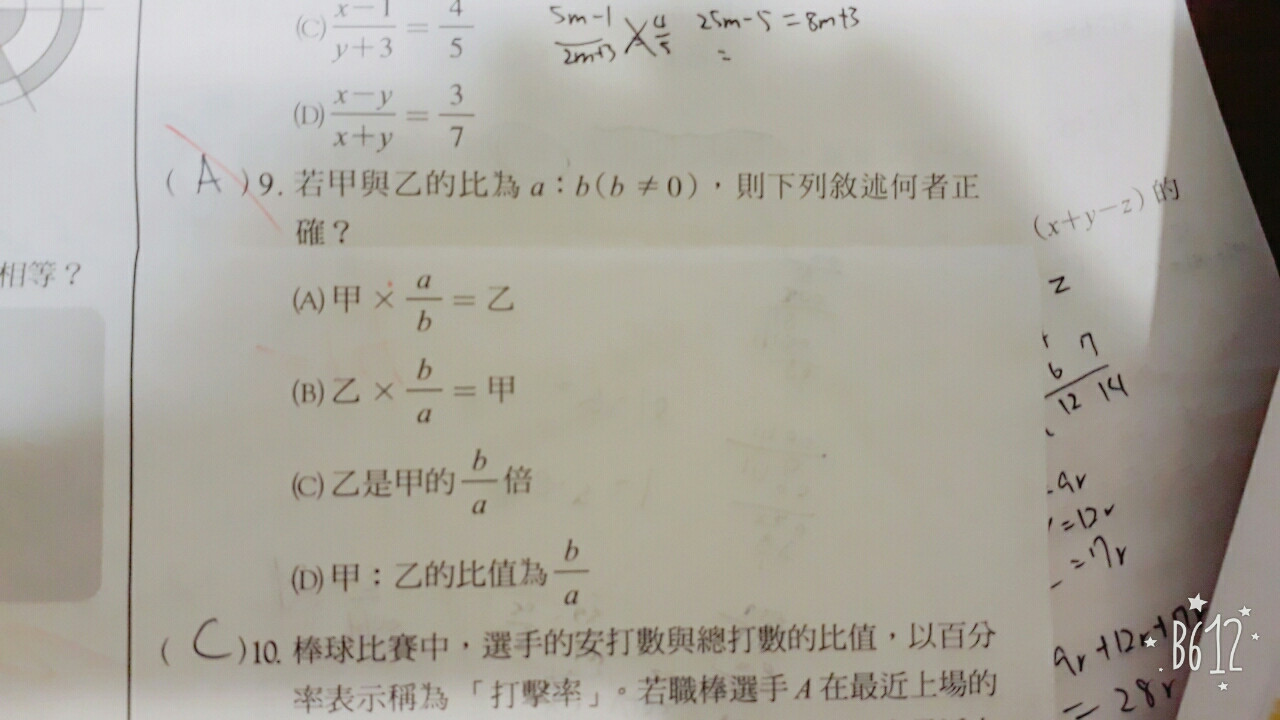 (C) x－1/y＋3 ＝ 4/5
5m-1/2m+3 4/5 25m-5=8m+3
=
(D) x－y/x＋y ＝ 3/7
( A ) 9. 若甲與乙的比為 a：b(b ≠ 0)，則下列敘述何者正
確？
(A) 甲 × a/b ＝ 乙
(B) 乙 × b/a ＝ 甲
(C) 乙是甲的 b/a 倍
(D) 甲：乙的比值為 b/a
( C ) 10. 棒球比賽中，選手的安打數與總打數的比值，以百分
率表示稱為「打擊率」。若職棒選手 A 在最近上場的
相等？
(x＋y－z) 的
z
6 7
12 14
9r
=12r
=7r
9r+12r+7r
=28r
B612